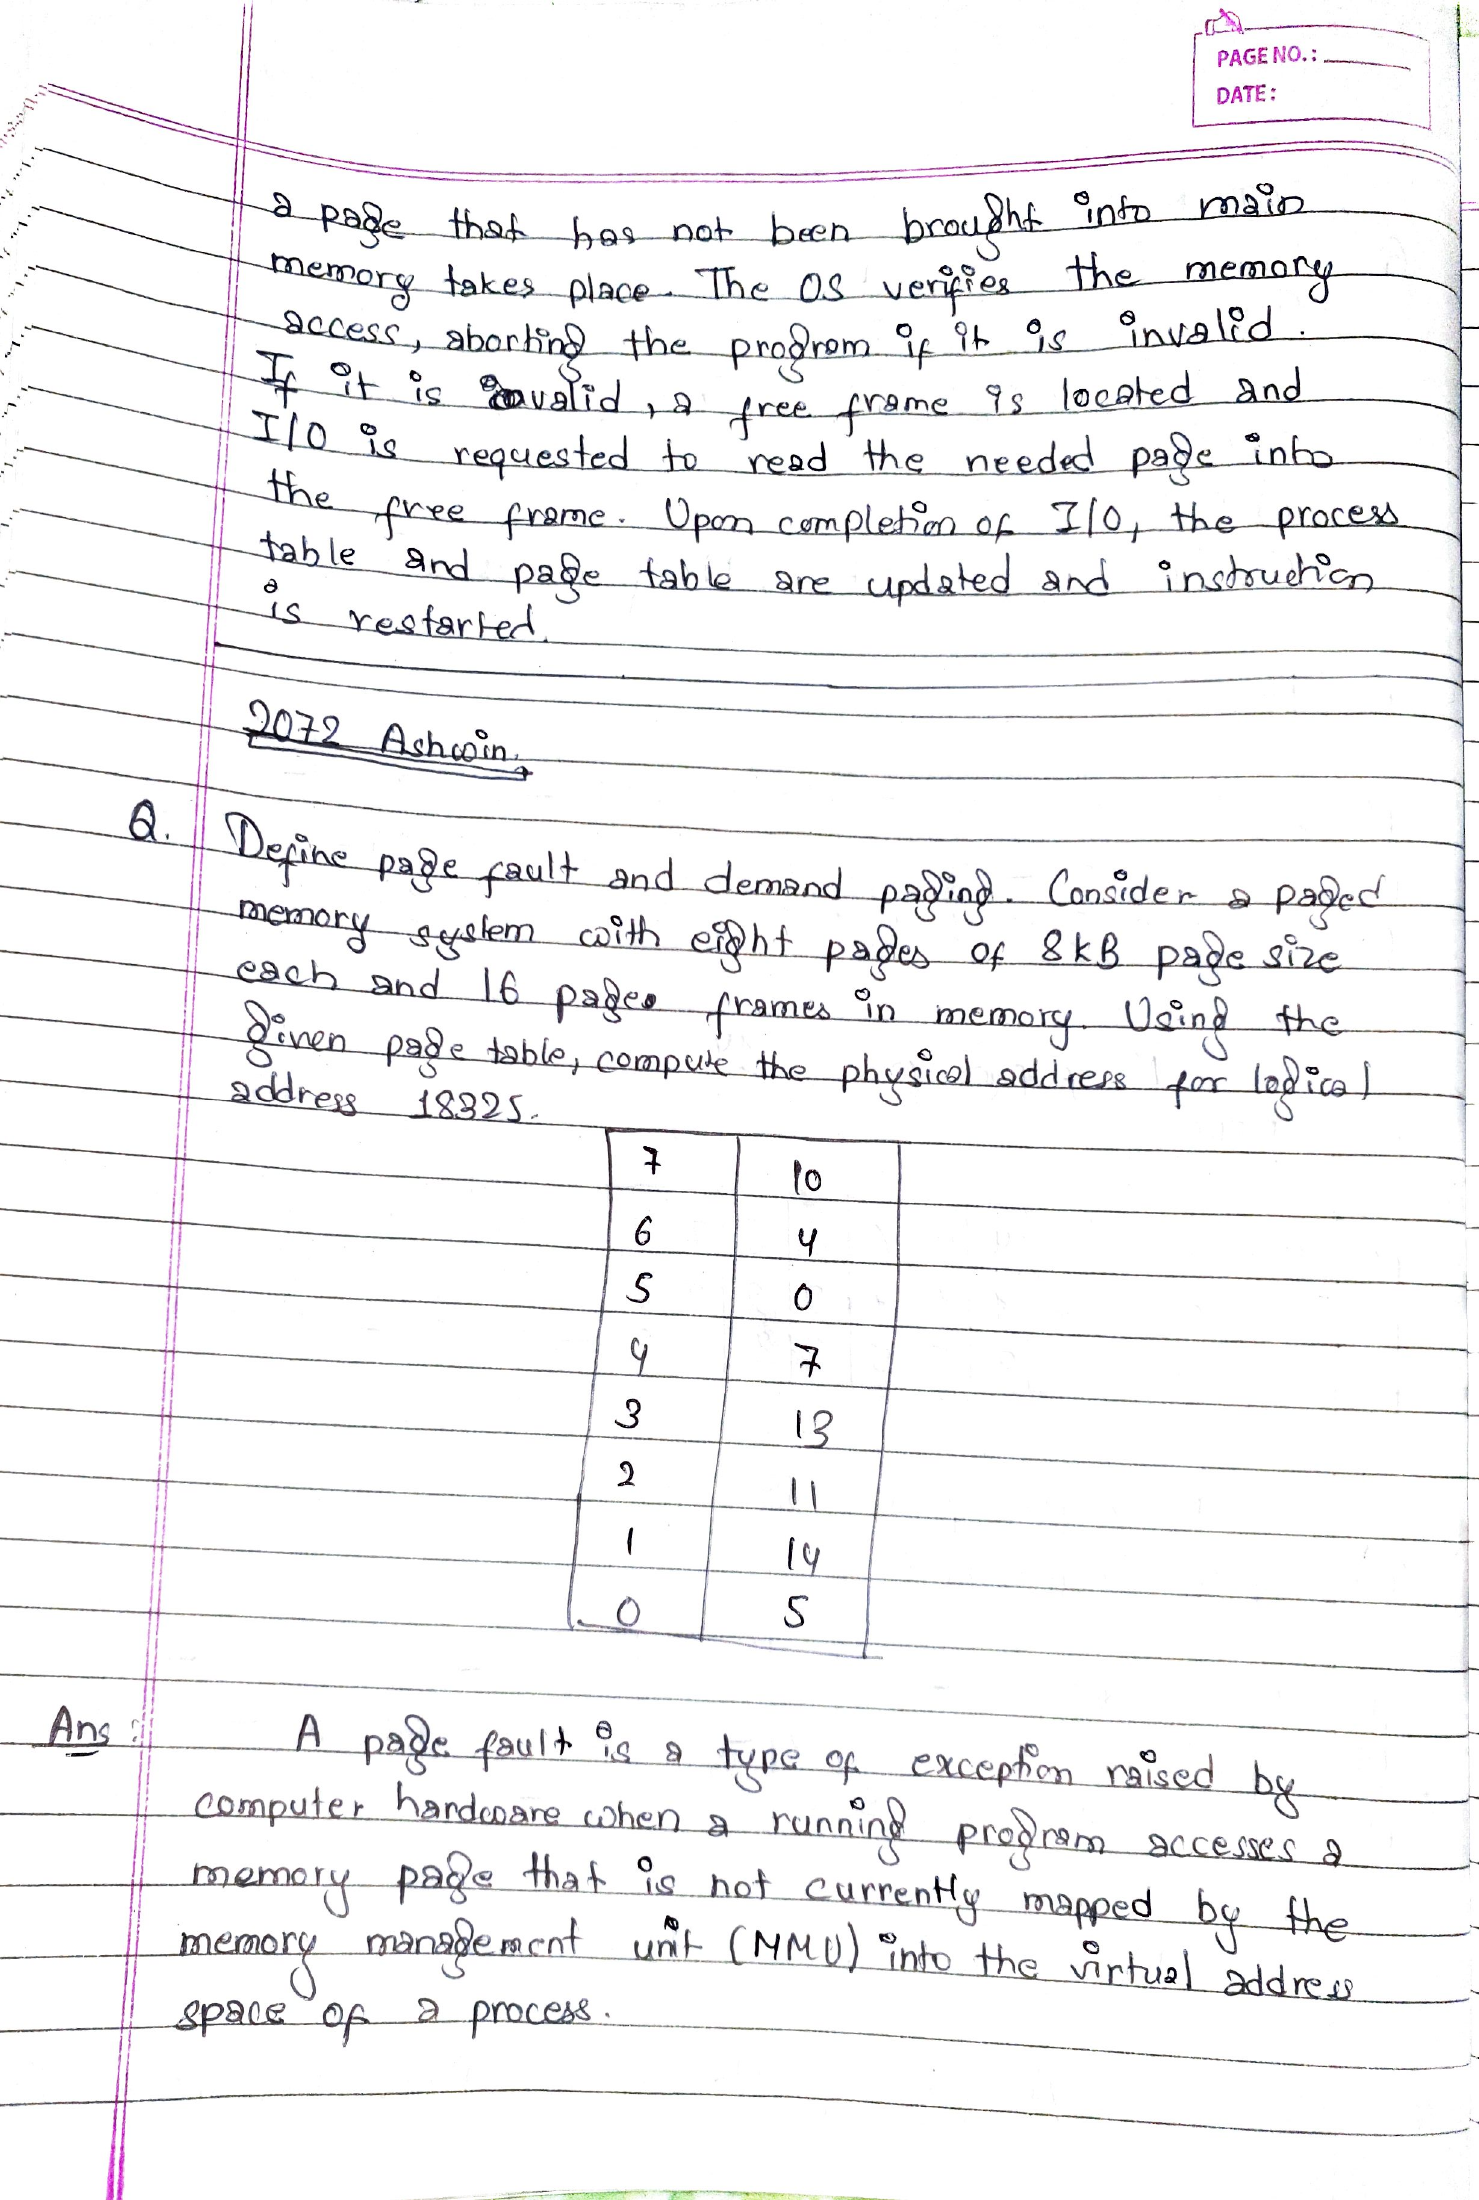 PAGE NO.:
DATE:
a page that has not been brought into main
memory takes place. The OS verifies the memory
access, aborting the program if it is invalid.
If it is valid, a free frame is located and
I/O is requested to read the needed page into
the free frame. Upon completion of I/O, the process
table and page table are updated and instruction
is restarted.
2072 Ashwin
Q. Define page fault and demand paging. Consider a paged
memory system with eight pages of 8kB page size
each and 16 page frames in memory. Using the
given page table, compute the physical address for logical
address 18325.
7 10
6 4
5 0
4 7
3 13
2 11
1 14
0 5
Ans: A page fault is a type of exception raised by
computer hardware when a running program accesses a
memory page that is not currently mapped by the
memory management unit (MMU) into the virtual address
space of a process.